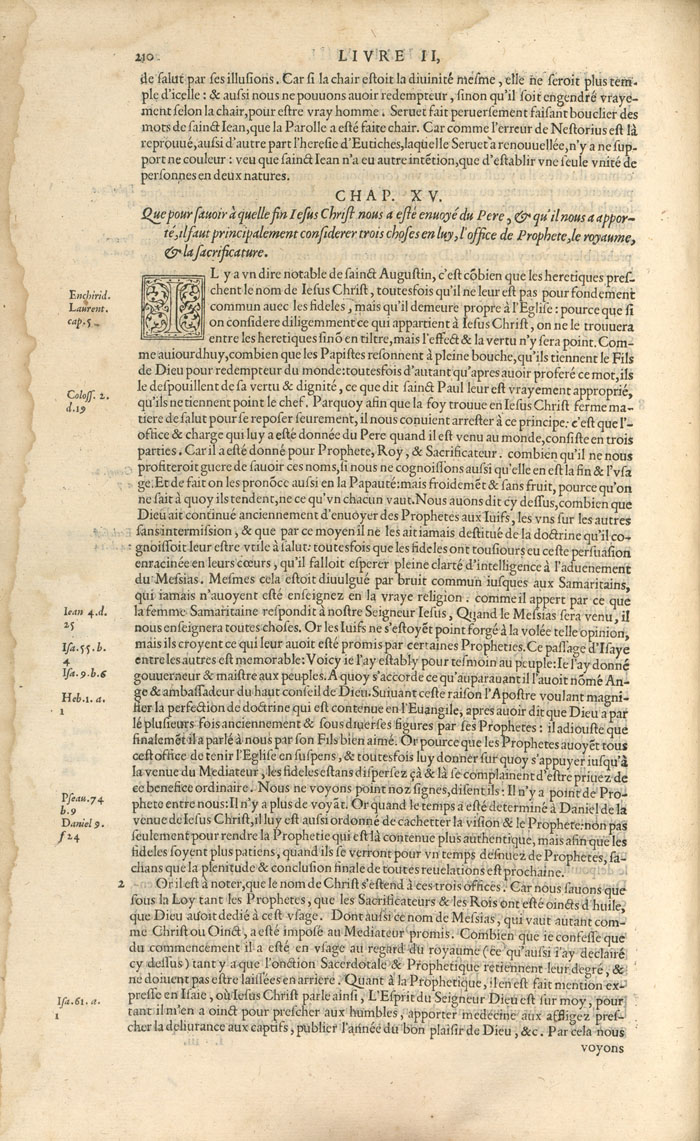 210
LIVRE II,
de salut par ses illusions. Car si la chair estoit la diuinité mesme, elle ne seroit plus tem-
ple d'icelle: & aussi nous ne pouuons auoir redempteur, sinon qu'il soit engendré vraye-
ment selon la chair, pour estre vray homme. Seruet fait peruersement faisant bouclier des
mots de sainct Iean, que la Parolle a esté faite chair. Car comme l'erreur de Nestorius est là
reprouué, aussi d'autre part l'heresie d'Eutiches, laquelle Seruet a renouuellée, n'y a ne sup-
port ne couleur: veu que sainct Iean n'a eu autre intẽtion, que d'establir vne seule vnité de
personnes en deux natures.
CHAP. XV.
Que pour sauoir à quelle fin Iesus Christ nous a esté enuoyé du Pere, & qu'il nous a appor-
té, il faut principalement considerer trois choses en luy, l'office de Prophete, le royaume,
& la sacrificature.
IL y a vn dire notable de sainct Augustin, c'est cõbien que les heretiques pres-
Enchirid.
chent le nom de Iesus Christ, toutesfois qu'il ne leur est pas pour fondement
Laurent.
commun auec les fideles, mais qu'il demeure propre à l'Eglise: pource que si
cap. 5
on considere diligemment ce qui appartient à Iesus Christ, on ne le trouuera
entre les heretiques sinõ en tiltre, mais l'effect & la vertu n'y sera point. Com-
me auiourdhuy, combien que les Papistes resonnent à pleine bouche, qu'ils tiennent le Fils
de Dieu pour redempteur du monde: toutesfois d'autant qu'apres auoir proferé ce mot, ils
le despouillent de sa vertu & dignité, ce que dit sainct Paul leur est vrayement approprié,
Coloss. 2.
qu'ils ne tiennent point le chef. Parquoy afin que la foy trouue en Iesus Christ ferme ma-
d. 19
tiere de salut pour se reposer seurement, il nous conuient arrester à ce principe: c'est que l'-
office & charge qui luy a esté donnée du Pere quand il est venu au monde, consiste en trois
parties. Car il a esté donné pour Prophete, Roy, & Sacrificateur. combien qu'il ne nous
profiteroit guere de sauoir ces noms, si nous ne cognoissons aussi qu'elle en est la fin & l'vsa
ge. Et de fait on les pronõce aussi en la Papauté: mais froidemẽt & sans fruit, pource qu'on
ne sait à quoy ils tendent, ne ce qu'vn chacun vaut. Nous auons dit cy dessus, combien que
Dieu ait continué anciennement d'enuoyer des Prophetes aux Iuifs, les vns sur les autres
sans intermission, & que par ce moyen il ne les ait iamais destitué de la doctrine qu'il co-
gnoissoit leur estre vtile à salut: toutesfois que les fideles ont tousiours eu ceste persuasion
enracinée en leurs cœurs, qu'il falloit esperer pleine clarté d'intelligence à l'aduenement
du Messias. Mesmes cela estoit diuulgué par bruit commun iusques aux Samaritains,
qui iamais n'auoyent esté enseignez en la vraye religion. comme il appert par ce que
Iean 4. d.
la femme Samaritaine respondit à nostre Seigneur Iesus, Quand le Messias sera venu, il
25
nous enseignera toutes choses. Or les Iuifs ne s'estoyẽt point forgé à la volée telle opinion,
Isa. 55. b.
mais ils croyent ce qui leur auoit esté promis par certaines Propheties. Ce passage d'Isaye
4
entre les autres est memorable: Voicy ie l'ay estably pour tesmoin au peuple: Ie l'ay donné
Isa. 9. b. 6
gouuerneur & maistre aux peuples. A quoy s'accorde ce qu'auparauant il l'auoit nõmé An-
ge & ambassadeur du haut conseil de Dieu. Suiuant ceste raison l'Apostre voulant magni-
Heb. 1. a.
fier la perfection de doctrine qui est contenue en l'Euangile, apres auoir dit que Dieu a par
1
lé plusieurs fois anciennement & sous diuerses figures par ses Prophetes: il adiouste que
finalemẽt il a parlé à nous par son Fils bien aimé. Or pource que les Prophetes auoyẽt tous
cest office de tenir l'Eglise en suspens, & toutesfois luy donner sur quoy s'appuyer iusqu'à
la venue du Mediateur, les fideles estans dispersez çà & là se complainent d'estre priuez de
ce benefice ordinaire. Nous ne voyons point noz signes, disent ils: Il n'y a point de Pro-
Pseau. 74
phete entre nous: Il n'y a plus de voyãt. Or quand le temps a esté determiné à Daniel de la
b. 9
venue de Iesus Christ, il luy est aussi ordonné de cachetter la vision & le Prophete: non pas
Daniel 9.
seulement pour rendre la Prophetie qui est là contenue plus authentique, mais afin que les
f 24
fideles soyent plus patiens, quand ils se verront pour vn temps desnuez de Prophetes, sa-
chans que la plenitude & conclusion finale de toutes reuelations est prochaine.
2 Or il est à noter, que le nom de Christ s'estend à ces trois offices. Car nous sauons que
sous la Loy tant les Prophetes, que les Sacrificateurs & les Rois ont esté oincts d'huile,
que Dieu auoit dedié à cest vsage. Dont aussi ce nom de Messias, qui vaut autant com-
me Christ ou Oinct, a esté imposé au Mediateur promis. Combien que ie confesse que
du commencement il a esté en vsage au regard du royaume (ce qu'aussi i'ay declairé
cy dessus) tant y a que l'onction Sacerdotale & Prophetique retiennent leur degré, &
ne doiuent pas estre laissées en arriere. Quant à la Prophetique, il en est fait mention ex-
Isa. 61. a.
presse en Isaie, où Iesus Christ parle ainsi, L'Esprit du Seigneur Dieu est sur moy, pour
1
tant il m'en a oinct pour prescher aux humbles, apporter medecine aux affligez pres-
cher la deliurance aux captifs, publier l'année du bon plaisir de Dieu, &c. Par cela nous
voyons